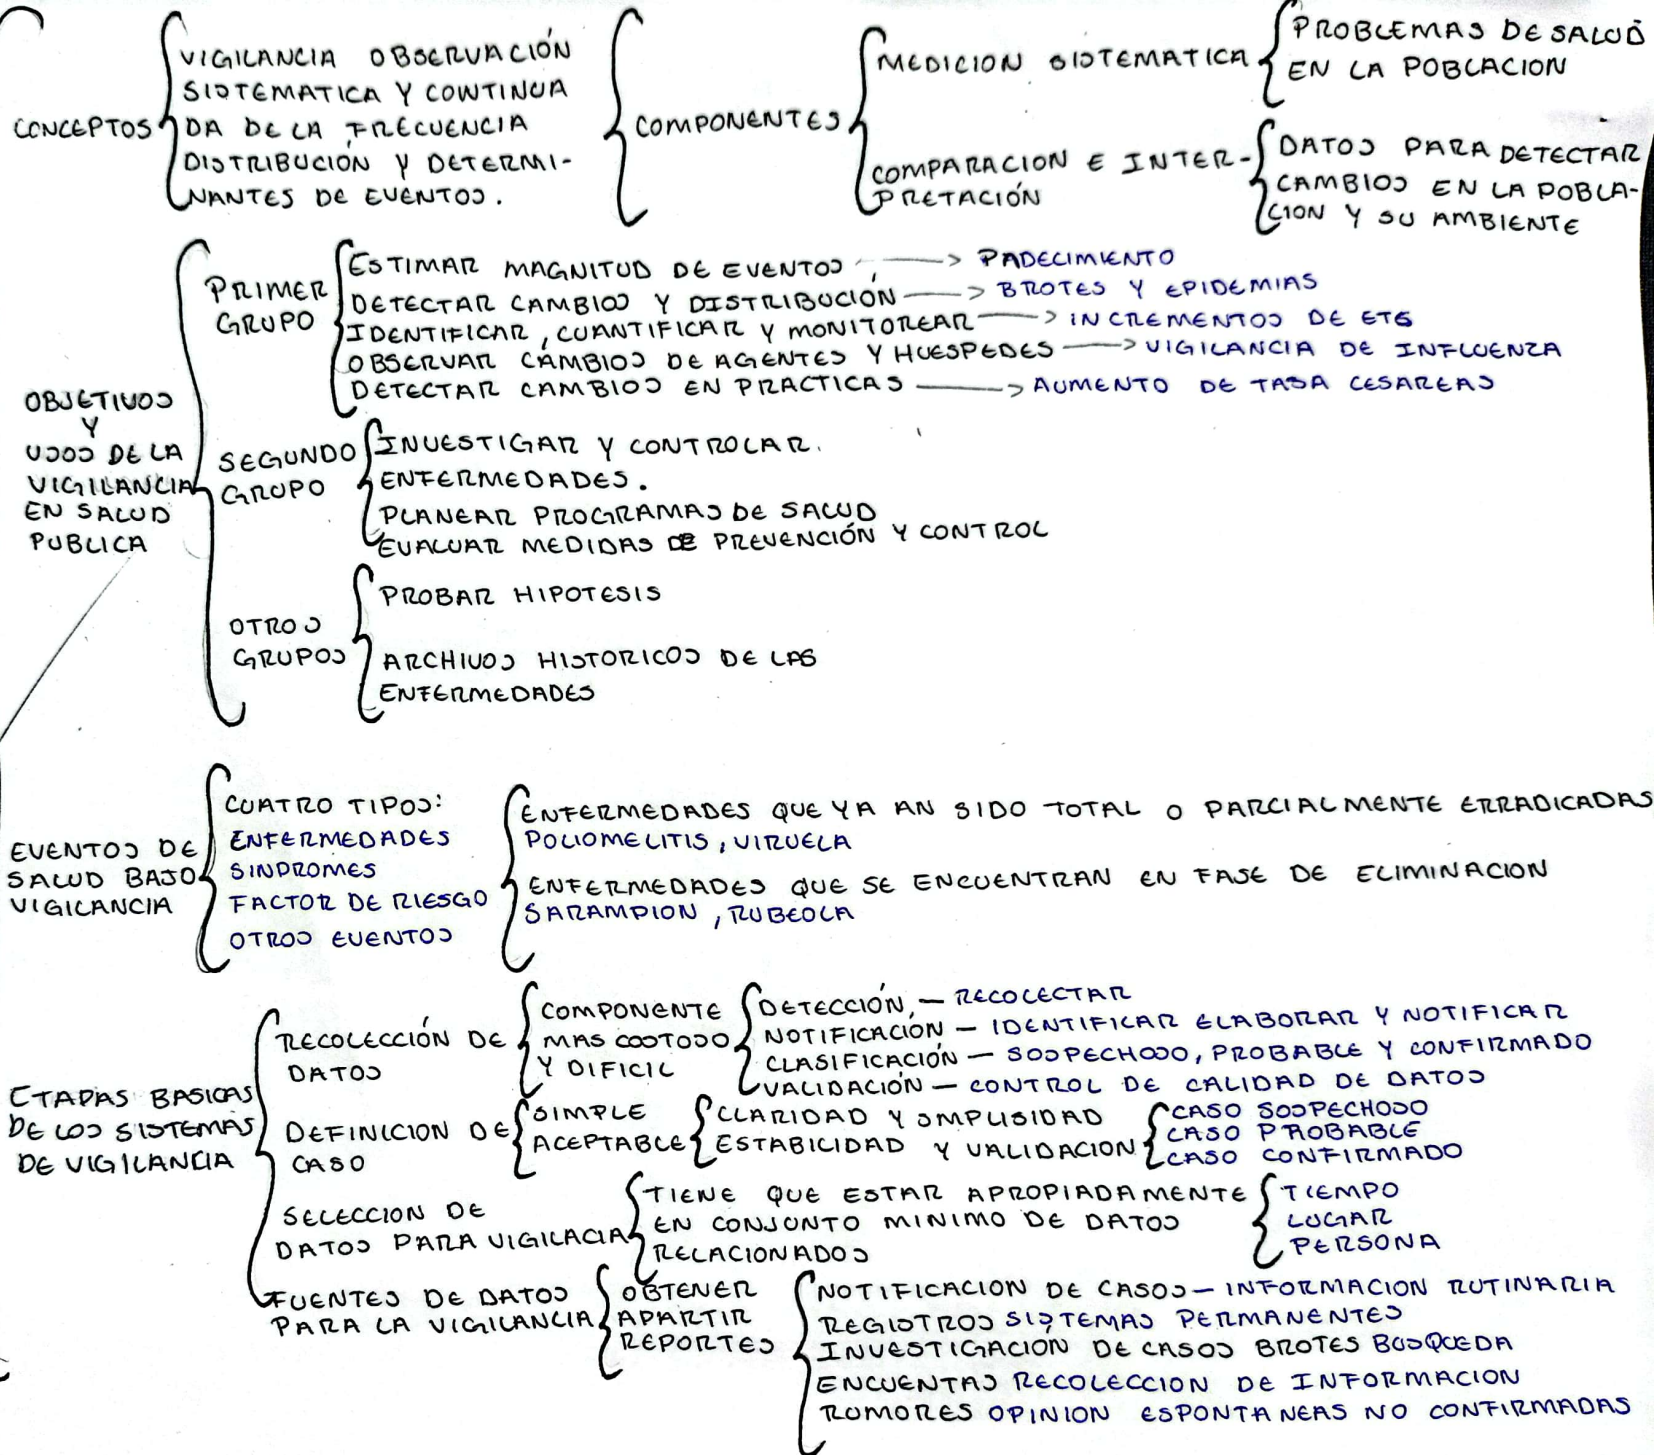 CONCEPTOS
VIGILANCIA OBSERVACIÓN
SISTEMATICA Y CONTINUA
DA DE LA FRECUENCIA
DISTRIBUCIÓN Y DETERMI-
NANTES DE EVENTOS.
COMPONENTES
MEDICION SISTEMATICA
PROBLEMAS DE SALUD
EN LA POBLACION
COMPARACION E INTER-
PRETACIÓN
DATOS PARA DETECTAR
CAMBIOS EN LA POBLA-
CION Y SU AMBIENTE
OBJETIVOS
Y
USOS DE LA
VIGILANCIA
EN SALUD
PUBLICA
PRIMER
GRUPO
ESTIMAR MAGNITUD DE EVENTOS → PADECIMIENTO
DETECTAR CAMBIOS Y DISTRIBUCIÓN → BROTES Y EPIDEMIAS
IDENTIFICAR, CUANTIFICAR Y MONITOREAR → INCREMENTOS DE ETS
OBSERVAR CAMBIOS DE AGENTES Y HUESPEDES → VIGILANCIA DE INFLUENZA
DETECTAR CAMBIOS EN PRACTICAS → AUMENTO DE TASA CESAREAS
SEGUNDO
GRUPO
INVESTIGAR Y CONTROLAR.
ENFERMEDADES.
PLANEAR PROGRAMAS DE SALUD
EVALUAR MEDIDAS DE PREVENCIÓN Y CONTROL
OTROS
GRUPOS
PROBAR HIPOTESIS
ARCHIVOS HISTORICOS DE LAS
ENFERMEDADES
EVENTOS DE
SALUD BAJO
VIGILANCIA
CUATRO TIPOS:
ENFERMEDADES
SINDROMES
FACTOR DE RIESGO
OTROS EVENTOS
ENFERMEDADES QUE YA AN SIDO TOTAL O PARCIALMENTE ERRADICADAS
POLIOMELITIS, VIRUELA
ENFERMEDADES QUE SE ENCUENTRAN EN FASE DE ELIMINACION
SARAMPION, RUBEOLA
ETAPAS BASICAS
DE LOS SISTEMAS
DE VIGILANCIA
RECOLECCIÓN DE
DATOS
COMPONENTE
MAS COSTOSO
Y DIFICIL
DETECCIÓN, — RECOLECTAR
NOTIFICACIÓN — IDENTIFICAR ELABORAR Y NOTIFICAR
CLASIFICACIÓN — SOSPECHOSO, PROBABLE Y CONFIRMADO
VALIDACIÓN — CONTROL DE CALIDAD DE DATOS
DEFINICION DE
CASO
SIMPLE
ACEPTABLE
CLARIDAD Y SMPLISIDAD
ESTABILIDAD Y VALIDACION
CASO SOSPECHOSO
CASO PROBABLE
CASO CONFIRMADO
SELECCION DE
DATOS PARA VIGILACIA
TIENE QUE ESTAR APROPIADAMENTE
EN CONJUNTO MINIMO DE DATOS
RELACIONADOS
TIEMPO
LUGAR
PERSONA
FUENTES DE DATOS
PARA LA VIGILANCIA
OBTENER
APARTIR
REPORTES
NOTIFICACION DE CASOS — INFORMACION RUTINARIA
REGISTROS SISTEMAS PERMANENTES
INVESTIGACIÓN DE CASOS BROTES BUSQUEDA
ENCUENTAS RECOLECCION DE INFORMACION
RUMORES OPINION ESPONTANEAS NO CONFIRMADAS